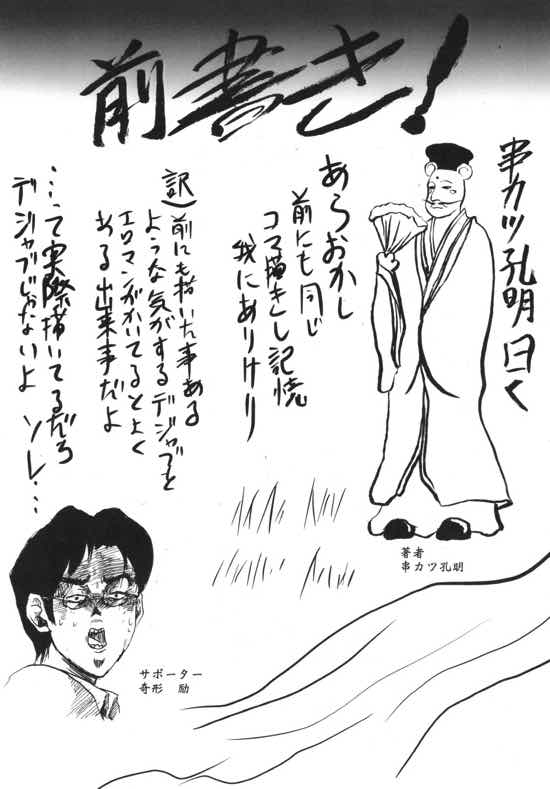 前書き！
串カツ孔明曰く
あらおかし
前にも同じ
コマ描きし記憶
我にありけり
訳)前にも描いた事ある
ような気がするデジャブと
エロマンガかいてるとよく
ある出来事だよ
…って実際描いてるだろ
デジャブじゃないよ　ソレ…
著者
串カツ孔明
サポーター
奇形　励